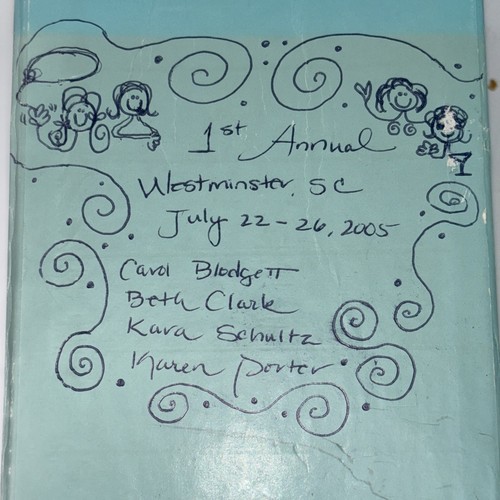 1st Annual
Westminster, SC
July 22-26, 2005
Carol Blodgett
Beth Clark
Kara Schultz
Karen Porter